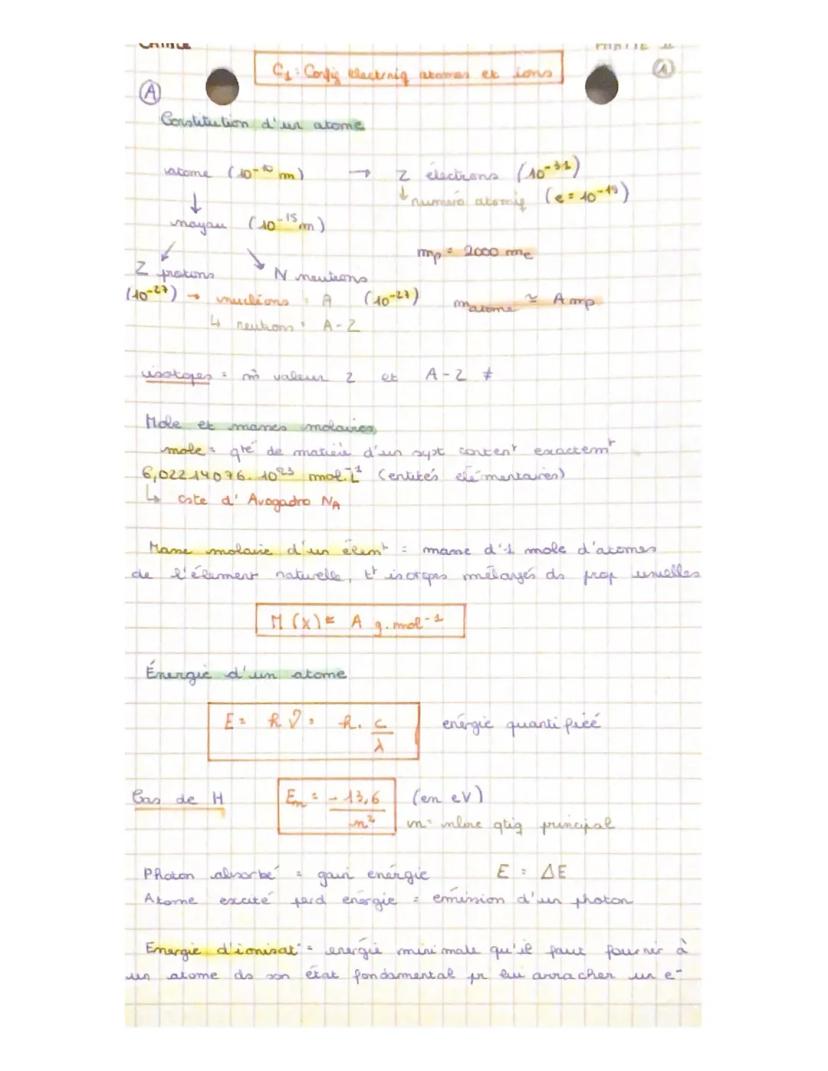 CHIMIE PARTIE
C1 : Config électriq atomes et ions
A 1
Constitution d'un atome
atome (10⁻¹⁰ m) → Z électrons (10⁻³¹)
↓ ↓ numéro atomiq (e = 10⁻¹⁹)
noyau (10⁻¹⁵ m)
mp = 2000 me
Z protons N neutrons
(10⁻²⁷) → nucléons : A (10⁻²⁷) matome ≃ A mp
↳ neutrons : A-Z
isotopes = m̂ valeur Z et A-Z ≠
Mole et masses molaires
mole = qté de matière d'un syst conten^t exactem^t
6,02214076. 10²³ mol.L⁻¹ (entités élémentaires)
↳ cste d'Avogadro NA
Masse molaire d'un élém^t = masse d'1 mole d'atomes
de l'élément naturelle, t^t isotopes mélangés ds prop usuelles
M (X) ≃ A g.mol⁻¹
Énergie d'un atome
E = hν = h. c/λ énergie quantifiée
Cas de H En = -13,6/n² (en eV)
n = nbre qtiq principal
Photon absorbé = gain énergie E = ΔE
Atome excité perd énergie = émission d'un photon
Energie d'ionisat° = énergie minimale qu'il faut fournir à
un atome ds son état fondamental pr lui arracher un e⁻